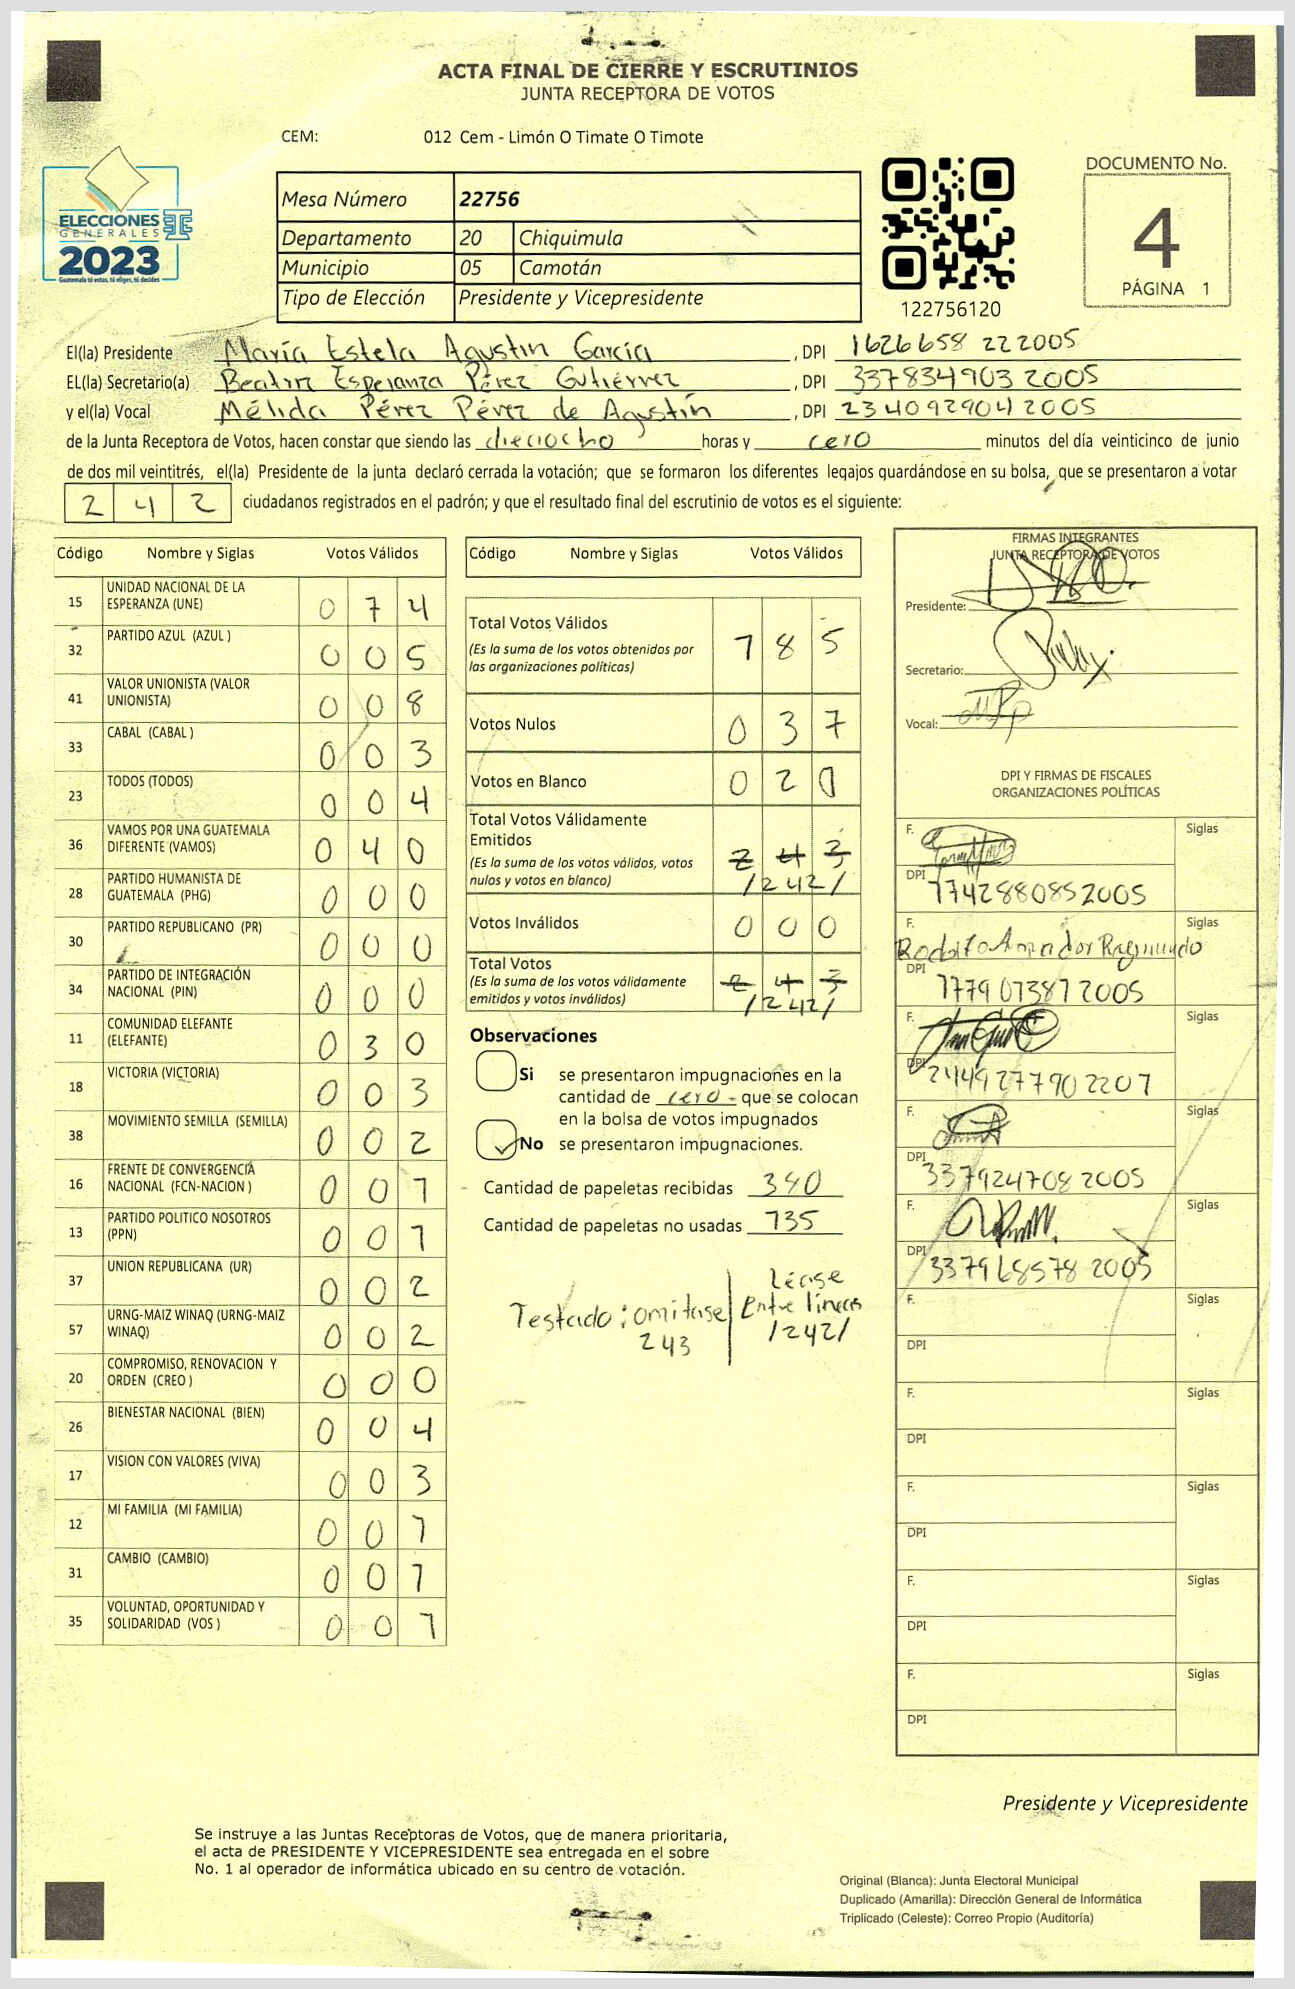 ACTA FINAL DE CIERRE Y ESCRUTINIOS
JUNTA RECEPTORA DE VOTOS
CEM: 012 Cem - Limón O Timate O Timote
ELECCIONES
GENERALES
2023
Guatemala tú votas, tú eliges, tú decides
Mesa Número 22756
Departamento 20 Chiquimula
Municipio 05 Camotán
Tipo de Elección Presidente y Vicepresidente
122756120
DOCUMENTO No.
4
PÁGINA 1
El(la) Presidente María Estela Agustín García, DPI 1626658 222005
EL(la) Secretario(a) Beatriz Esperanza Pérez Gutiérrez, DPI 337834903 2005
y el(la) Vocal Mélida Pérez Pérez de Agustín, DPI 234092904 2005
de la Junta Receptora de Votos, hacen constar que siendo las dieciocho horas y cero minutos del día veinticinco de junio
de dos mil veintitrés, el(la) Presidente de la junta declaró cerrada la votación; que se formaron los diferentes legajos guardándose en su bolsa, que se presentaron a votar
242 ciudadanos registrados en el padrón; y que el resultado final del escrutinio de votos es el siguiente:
Código Nombre y Siglas Votos Válidos
15 UNIDAD NACIONAL DE LA ESPERANZA (UNE) 074
32 PARTIDO AZUL (AZUL ) 005
41 VALOR UNIONISTA (VALOR UNIONISTA) 008
33 CABAL (CABAL ) 003
23 TODOS (TODOS) 004
36 VAMOS POR UNA GUATEMALA DIFERENTE (VAMOS) 040
28 PARTIDO HUMANISTA DE GUATEMALA (PHG) 000
30 PARTIDO REPUBLICANO (PR) 000
34 PARTIDO DE INTEGRACIÓN NACIONAL (PIN) 000
11 COMUNIDAD ELEFANTE (ELEFANTE) 030
18 VICTORIA (VICTORIA) 003
38 MOVIMIENTO SEMILLA (SEMILLA) 002
16 FRENTE DE CONVERGENCIA NACIONAL (FCN-NACION ) 001
13 PARTIDO POLITICO NOSOTROS (PPN) 001
37 UNION REPUBLICANA (UR) 002
57 URNG-MAIZ WINAQ (URNG-MAIZ WINAQ) 002
20 COMPROMISO, RENOVACION Y ORDEN (CREO ) 000
26 BIENESTAR NACIONAL (BIEN) 004
17 VISION CON VALORES (VIVA) 003
12 MI FAMILIA (MI FAMILIA) 001
31 CAMBIO (CAMBIO) 001
35 VOLUNTAD, OPORTUNIDAD Y SOLIDARIDAD (VOS ) 001
Código Nombre y Siglas Votos Válidos
Total Votos Válidos 185
(Es la suma de los votos obtenidos por
las organizaciones políticas)
Votos Nulos 037
Votos en Blanco 020
Total Votos Válidamente
Emitidos
(Es la suma de los votos válidos, votos
nulos y votos en blanco) 243 /242/
Votos Inválidos 000
Total Votos
(Es la suma de los votos válidamente
emitidos y votos inválidos) 243 /242/
Observaciones
Si se presentaron impugnaciones en la
cantidad de cero - que se colocan
en la bolsa de votos impugnados
No se presentaron impugnaciones.
Cantidad de papeletas recibidas
Cantidad de papeletas no usadas 135
Testado: omitase 243
Léase
Entre líneas
/242/
FIRMAS INTEGRANTES
JUNTA RECEPTORA DE VOTOS
Presidente:
Secretario:
Vocal:
DPI Y FIRMAS DE FISCALES
ORGANIZACIONES POLÍTICAS
F. Siglas
DPI 1742880852005
F. Rodolfo Amador Raymundo Siglas
DPI 1779073872005
F. Siglas
DPI 2449277902207
F. Siglas
DPI 337924708 2005
F. Siglas
DPI 337968578 2005
F. Siglas
DPI
F. Siglas
DPI
F. Siglas
DPI
F. Siglas
DPI
F. Siglas
DPI
Presidente y Vicepresidente
Se instruye a las Juntas Receptoras de Votos, que de manera prioritaria,
el acta de PRESIDENTE Y VICEPRESIDENTE sea entregada en el sobre
No. 1 al operador de informática ubicado en su centro de votación.
Original (Blanca): Junta Electoral Municipal
Duplicado (Amarilla): Dirección General de Informática
Triplicado (Celeste): Correo Propio (Auditoría)